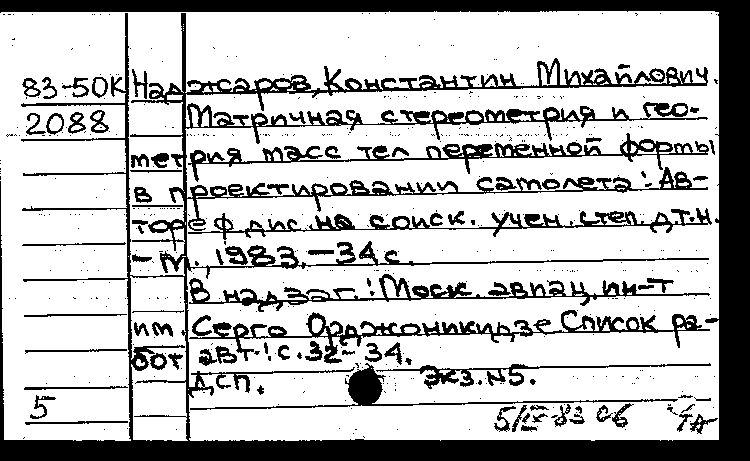 83-50К Наджаров, Константин Михайлович.
2088 Матричная стереометрия и гео-
метрия масс тел переменной формы
в проектировании самолета: Ав-
тореф дис. на соиск. учен. степ. д.т.н.
- М., 1983. - 34 с.
В надзаг.: Моск. авиац. ин-т
им. Серго Орджоникидзе Список ра-
бот авт.: с. 32-34.
Дсп. Экз. N5.
5 5/IV-83 сб